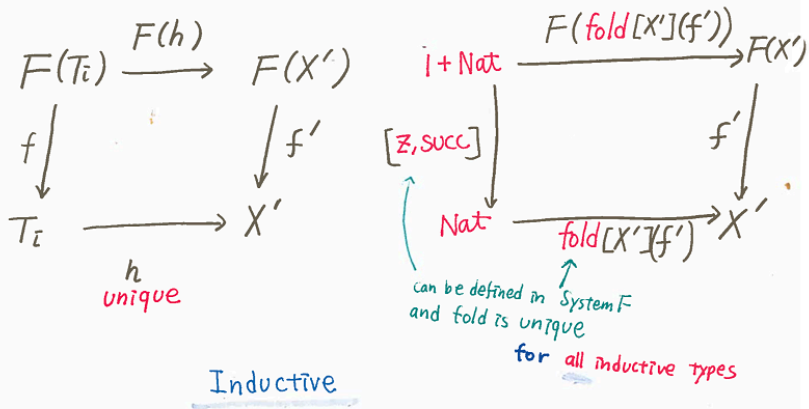 F(h)
F(Ti) F(X')
f f'
Ti X'
h
unique
F(fold[X'](f'))
1+Nat F(X')
[z,succ] f'
Nat X'
fold[X'](f')
can be defined in System F
and fold is unique
for all inductive types
Inductive